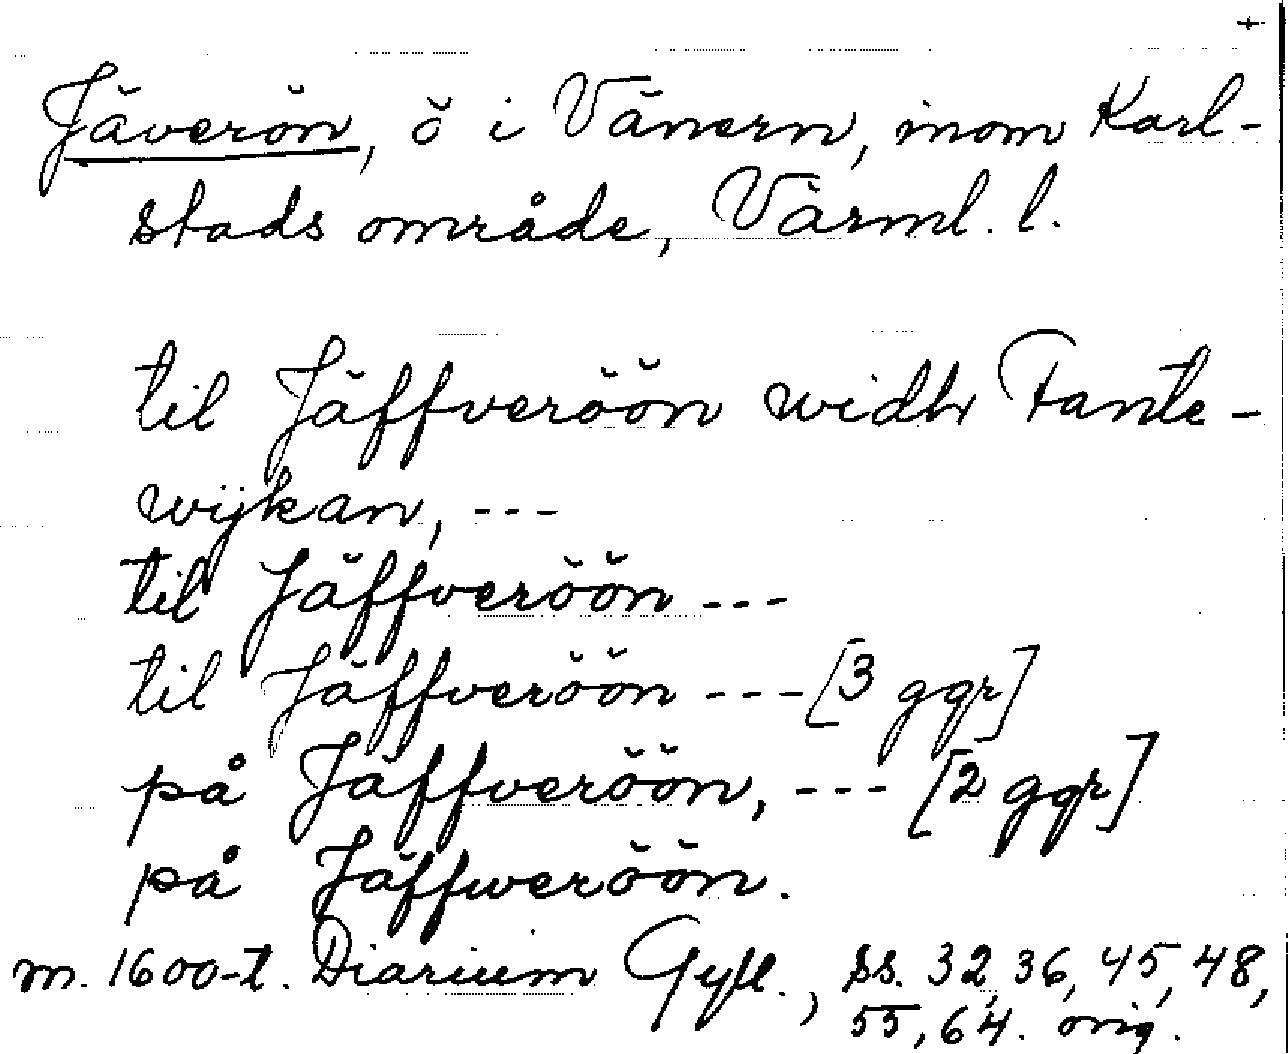 +
Jäverön, ö i Vänern, inom Karl-
stads område, Värml. l.
til Jäffveröön widhr Tante-
wijkan, ---
til Jäffveröön ---
til Jäffveröön --- [3 ggr]
på Jäffveröön, --- [2 ggr]
på Jäffweröön.
m. 1600-t. Diarium Gyll., ss. 32, 36, 45, 48,
55, 64. orig.